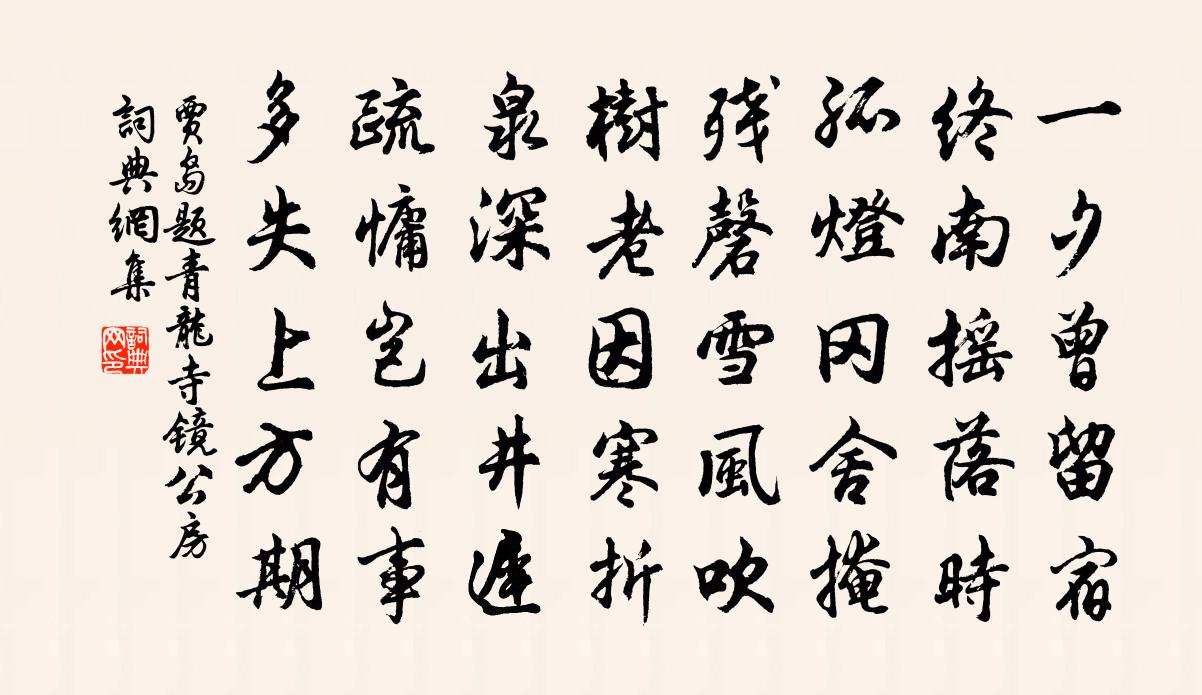 一夕曾留宿
終南摇落時
孤燈冈舍掩
残磬雪風吹
樹老因寒折
泉深出井遲
疏慵豈有事
多失上方期
賈島題青龍寺镜公房
詞典網集
詞典網印